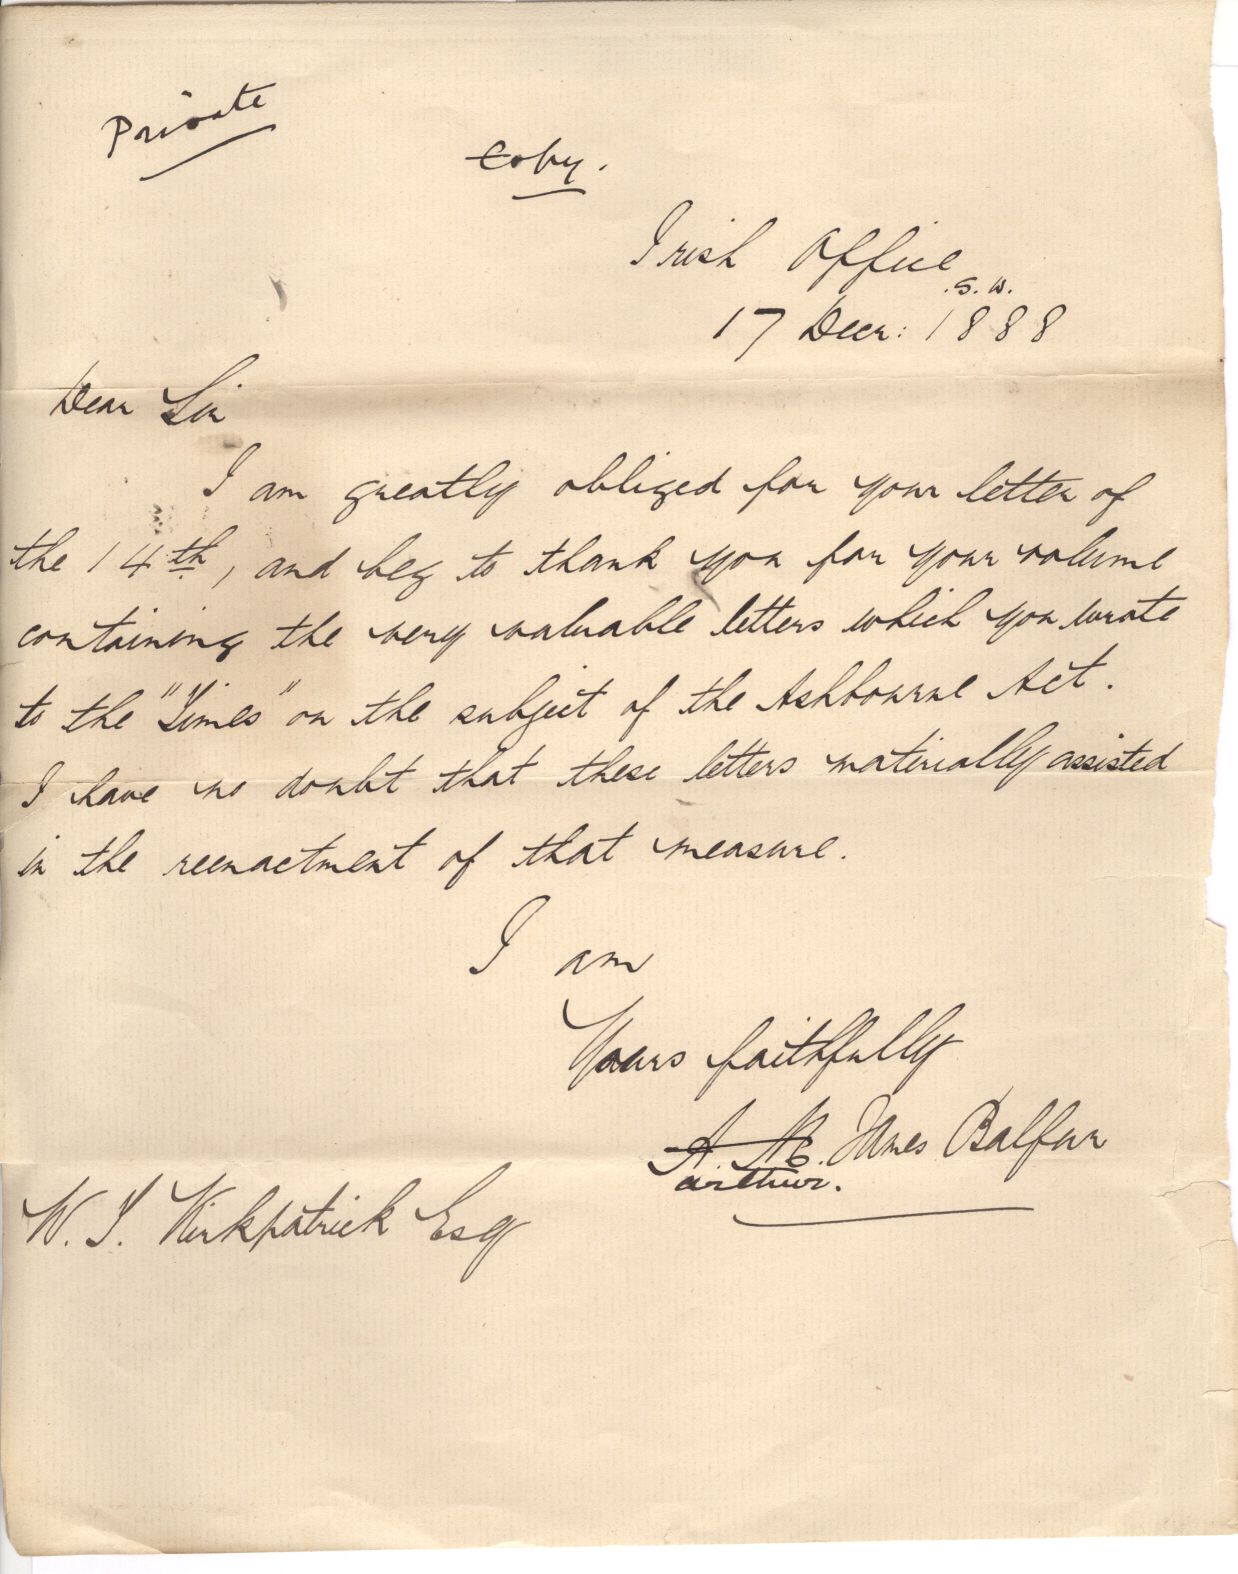 Private
Copy.
Irish Office
S. W.
17 Decr: 1888
Dear Sir
I am greatly obliged for your letter of
the 14th, and beg to thank you for your volume
containing the very valuable letters which you wrote
to the "Times" on the subject of the Ashbourne Act.
I have no doubt that these letters materially assisted
in the reenactment of that measure.
I am
Yours faithfully
James Balfour
arthur.
W. T. Kirkpatrick Esq